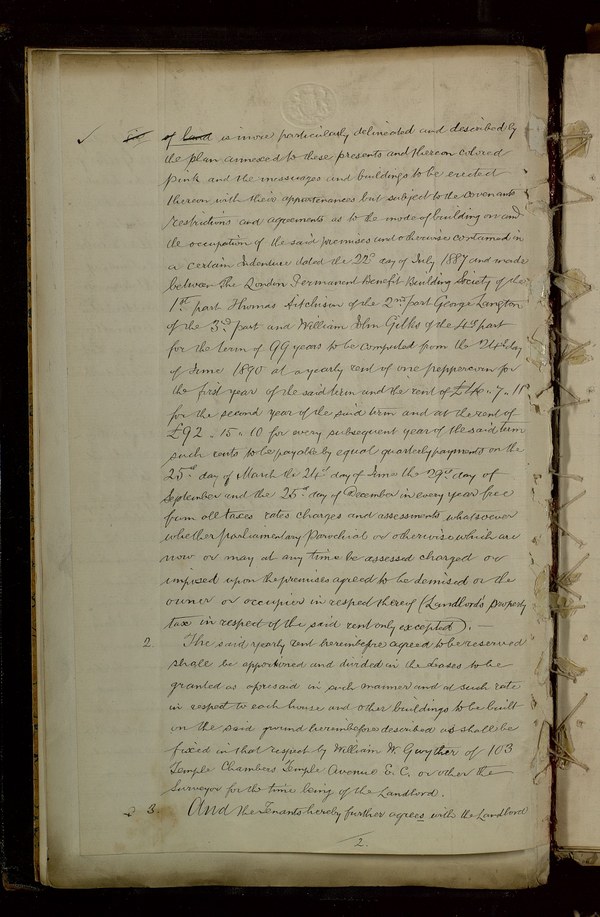 of land is more particularly delineated and described by
the plan annexed to these presents and thereon colored
pink and the messuages and buildings to be erected
thereon with their appurtenances but subject to the covenants
restrictions and agreements as to the mode of building on and
the occupation of the said premises and otherwise contained in
a certain Indenture dated the 22d day of July 1887 and made
between The London Permanent Benefit Building Society of the
1st part Thomas Aitchison of the 2nd part George Langton
of the 3rd part and William John Gilks of the 4th part
for the term of 99 years to be computed from the 24th day
of June 1890 at a yearly rent of one peppercorn for
the first year of the said term and the rent of
for the second year of the said term and at the rent of
£92 - 15 - 10 for every subsequent year of the said term
such rents to be payable by equal quarterly payments on the
25th day of March the 24th day of June the 29th day of
September and the 25th day of December in every year free
from all taxes rates charges and assessments whatsoever
whether parliamentary Parochial or otherwise which are
now or may at any time be assessed charged or
imposed upon the premises agreed to be demised or the
owner or occupier in respect thereof (Landlord's property
tax in respect of the said rent only excepted). —
2. The said yearly rent hereinbefore agreed to be reserved
shall be apportioned and divided in the Leases to be
granted as aforesaid in such manner and at such rate
in respect to each house and other buildings to be built
on the said ground hereinbefore described as shall be
fixed in that respect by William W. Gwyther of 103
Temple Chambers Temple Avenue E.C. or other the
Surveyor for the time being of the Landlord.
3. And the Tenants hereby further agrees with the Landlord
2.